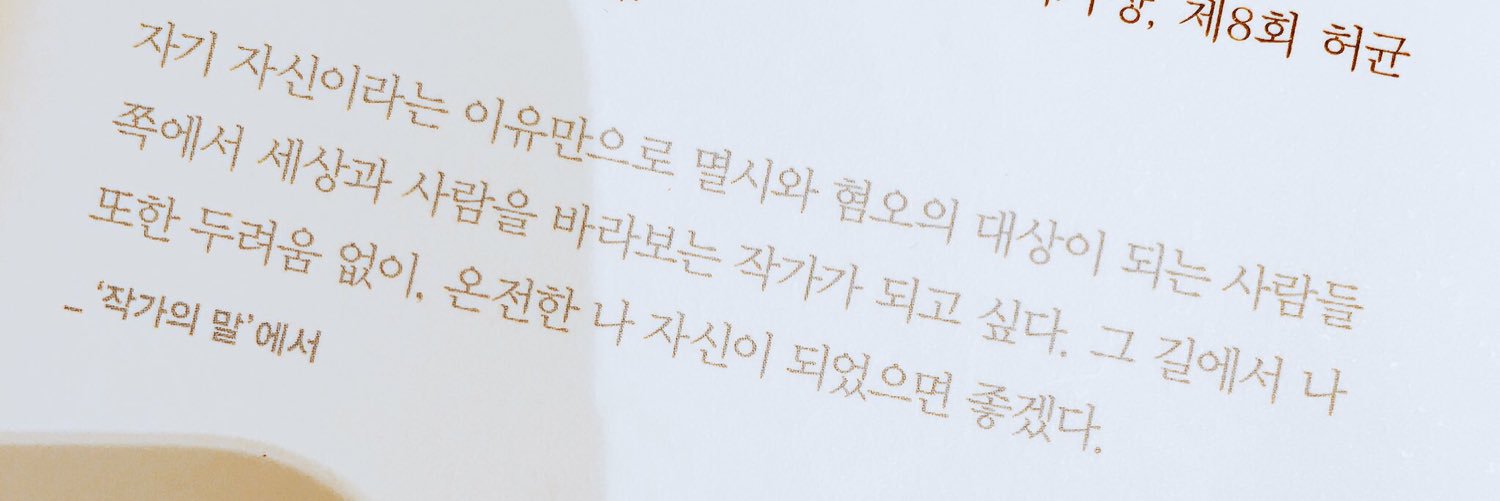 제8회 허균
자기 자신이라는 이유만으로 멸시와 혐오의 대상이 되는 사람들
쪽에서 세상과 사람을 바라보는 작가가 되고 싶다. 그 길에서 나
또한 두려움 없이, 온전한 나 자신이 되었으면 좋겠다.
_ ‘작가의 말’에서